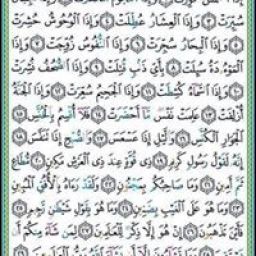 سُيِّرَتْ ٣ وَإِذَا الْعِشَارُ عُطِّلَتْ ٤ وَإِذَا الْوُحُوشُ حُشِرَتْ
٥ وَإِذَا الْبِحَارُ سُجِّرَتْ ٦ وَإِذَا النُّفُوسُ زُوِّجَتْ ٧ وَإِذَا
الْمَوْءُۥدَةُ سُئِلَتْ ٨ بِأَيِّ ذَنۢبٍ قُتِلَتْ ٩ وَإِذَا الصُّحُفُ نُشِرَتْ
١٠ وَإِذَا السَّمَآءُ كُشِطَتْ ١١ وَإِذَا الْجَحِيمُ سُعِّرَتْ ١٢ وَإِذَا الْجَنَّةُ
أُزْلِفَتْ ١٣ عَلِمَتْ نَفْسٌ مَّآ أَحْضَرَتْ ١٤ فَلَآ أُقْسِمُ بِالْخُنَّسِ ١٥
الْجَوَارِ الْكُنَّسِ ١٦ وَالَّيْلِ إِذَا عَسْعَسَ ١٧ وَالصُّبْحِ إِذَا تَنَفَّسَ ١٨
إِنَّهُۥ لَقَوْلُ رَسُولٍ كَرِيمٍ ١٩ ذِى قُوَّةٍ عِندَ ذِى الْعَرْشِ مَكِينٍ ٢٠ مُّطَاعٍ
ثَمَّ أَمِينٍ ٢١ وَمَا صَاحِبُكُم بِمَجْنُونٍ ٢٢ وَلَقَدْ رَءَاهُ بِالْأُفُقِ الْمُبِينِ
٢٣ وَمَا هُوَ عَلَى الْغَيْبِ بِضَنِينٍ ٢٤ وَمَا هُوَ بِقَوْلِ شَيْطَٰنٍ رَّجِيمٍ ٢٥
فَأَيْنَ تَذْهَبُونَ ٢٦ إِنْ هُوَ إِلَّا ذِكْرٌ لِّلْعَٰلَمِينَ ٢٧ لِمَن شَآءَ مِنكُمْ